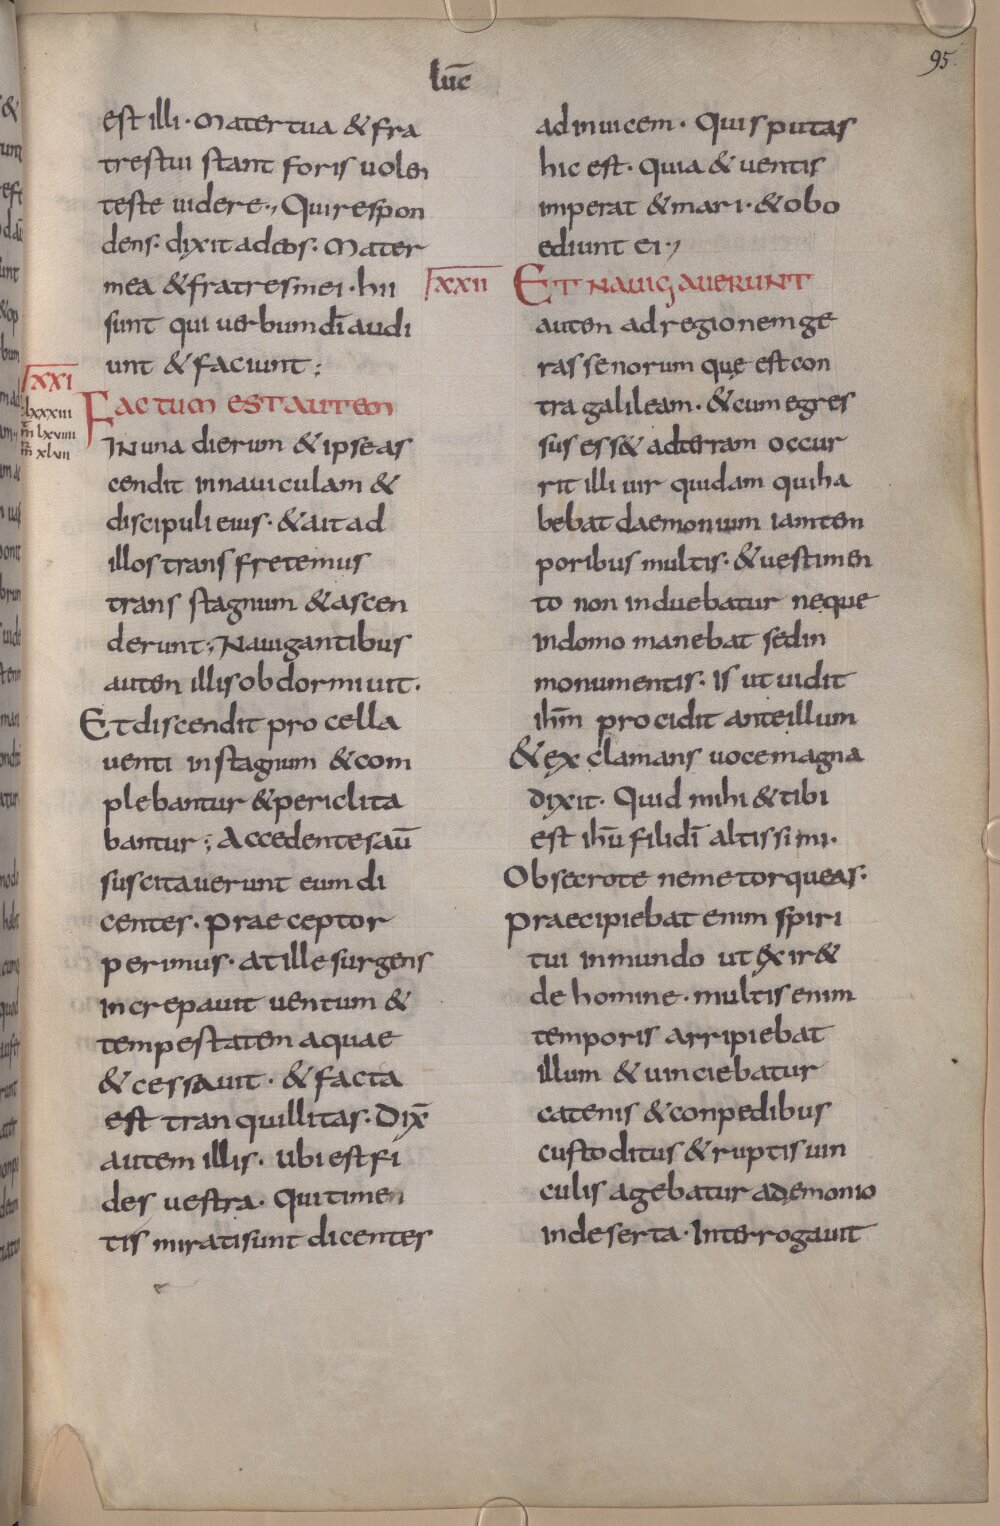 95
luc̄
est illi· Mater tua & fra
tres tui stant foris uolen
tes te uidere·, Qui respon
dens· dixit ad eos· Mater
mea & fratres mei· hii
sunt qui uerbum dī audi
unt & faciunt;
XXI
lxxxiii
m̄ lxviiii
m̄ xlvii
FACTUM EST AUTEM
IN una dierum & ipse as
cendit in nauiculam &
discipuli eius· & ait ad
illos transfretemus
trans stagnum & ascen
derunt; Nauigantibus
autem illis obdormiuit·
Et discendit procella
uenti in stagnum & com
plebantur & periclita
bantur; Accedentes aū
suscitauerunt eum di
centes· Praeceptor
perimus· at ille surgens
increpauit uentum &
tempestatem aquae
& cessauit· & facta
est tranquillitas· Dix̄
autem illis· Ubi est fi
des uestra· Qui timen
tis mirati sunt dicentes
ad inuicem· Quis putas
hic est· Quia & uentis
imperat & mari· & obo
ediunt ei·,
XXII
ET NAUIGAUERUNT
autem ad regionem ge
rassenorum quę est con
tra galileam· & cum egres
sus ess& ad terram occur
rit illi uir quidam qui ha
bebat daemonium iam tem
poribus multis· & uestimen
to non induebatur neque
in domo manebat sed in
monumentis· Is ut uidit
ih̄m procidit ante illum
& exclamans uoce magna
dixit· Quid mihi & tibi
est ih̄u fili dī altissimi·
Obsecro te ne me torqueas·
Praecipiebat enim spiri
tui inmundo ut exir&
de homine· multis enim
temporis arripiebat
illum & uinciebatur
catenis & conpedibus
custoditus & ruptis uin
culis agebatur a dęmonio
in deserta· Interrogauit